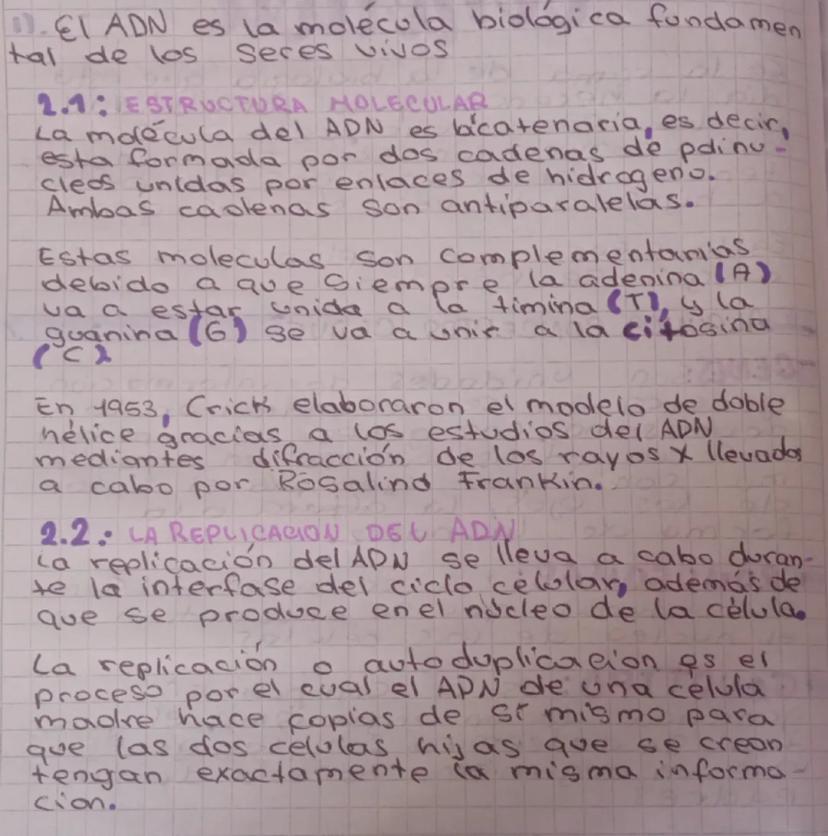 1). El ADN es la molécula biológica fundamen
tal de los seres vivos
2.1: ESTRUCTURA MOLECULAR
La molécula del ADN es bicatenaria, es decir,
esta formada por dos cadenas de polinu-
cleos unidas por enlaces de hidrogeno.
Ambas cadenas son antiparalelas.
Estas moleculas son complementarias
debido a que siempre la adenina (A)
va a estar unida a la timina (T), y la
guanina (G) se va a unir a la citosina
(C)
En 1953, Crick elaboraron el modelo de doble
hélice gracias a los estudios del ADN
mediantes difracción de los rayos X llevados
a cabo por Rosalind Frankin.
2.2: LA REPLICACION DEL ADN
La replicación del ADN se lleva a cabo duran-
te la interfase del ciclo celular, además de
que se produce en el núcleo de la célula.
La replicación o autoduplicacion es el
proceso por el cual el ADN de una célula
madre hace copias de sí mismo para
que las dos celulas hijas que se crean
tengan exactamente la misma informa-
cion.